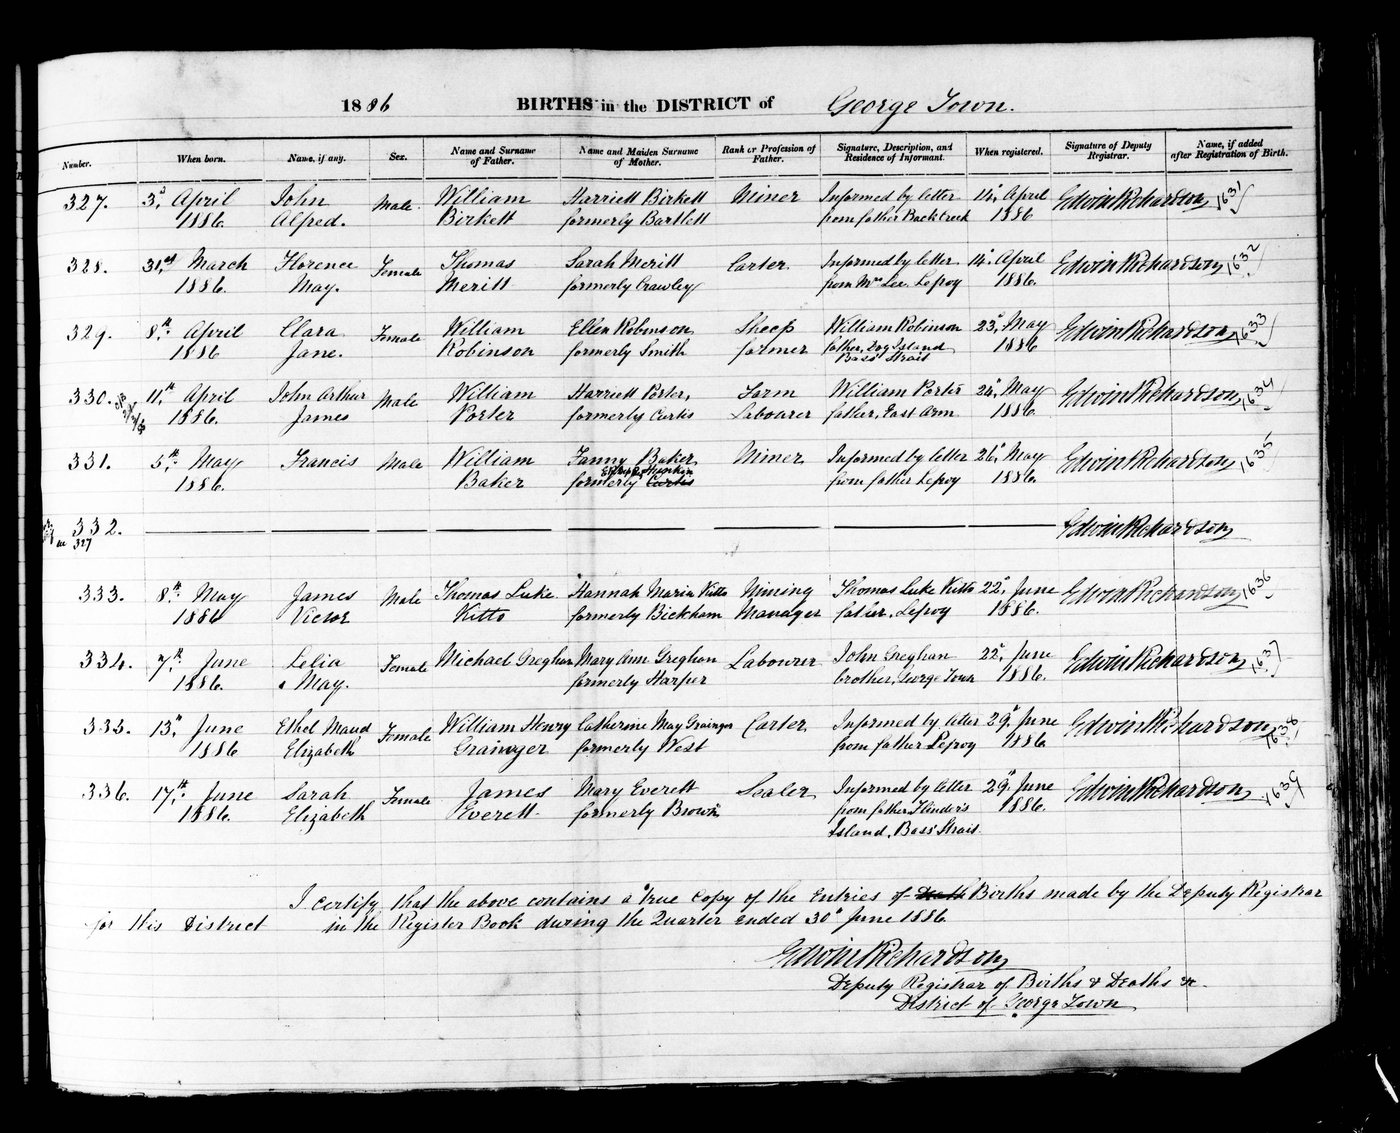 1886 BIRTHS in the DISTRICT of George Town.
Number. When born. Name, if any. Sex. Name and Surname of Father. Name and Maiden Surname of Mother. Rank or Profession of Father. Signature, Description, and Residence of Informant. When registered. Signature of Deputy Registrar. Name, if added after Registration of Birth.
327. 3d April John Male William Harriett Birkett Miner Informed by letter 14" April Edwin Richardson 1631
1886. Alfred. Birkett formerly Bartlett from father Back Creek 1886
328. 31st March Florence Female Thomas Sarah Meritt Carter Informed by letter 14" April Edwin Richardson 1632
1886. May. Meritt formerly Crawley from Mrs Lee Lefroy 1886.
329. 8th April Clara Female William Ellen Robinson Sheep William Robinson 23" May Edwin Richardson 1633
1886 Jane. Robinson formerly Smith farmer father, Dog Island 1886
Bass' Strait
330. 11th April John Arthur Male William Harriett Porter, Farm William Porter 24" May Edwin Richardson 1634
1886. James Porter formerly Curtis Labourer father, East Arm 1886.
331. 5th May Francis Male William Fanny Baker Miner Informed by letter 26" May Edwin Richardson 1635
1886. Baker formerly Curtis Hunkin from father Lefroy 1886.
332. Edwin Richardson
327
333. 8th May James Male Thomas Luke Hannah Maria Kitto Mining Thomas Luke Kitto 22" June Edwin Richardson 1636
1886 Victor Kitto formerly Bickham Manager father, Lefroy 1886.
334. 7th June Lelia Female Michael Greghan Mary Ann Greghan Labourer John Greghan 22" June Edwin Richardson 1637
1886. May. formerly Harper brother, George Town 1886.
335. 13" June Ethel Maud Female William Henry Catherine May Grainger Carter Informed by letter 29" June Edwin Richardson 1638
1886 Elizabeth Grainger formerly West from father Lefroy 1886
336. 17th June Sarah Female James Mary Everett Sealer Informed by letter 29" June Edwin Richardson 1639
1886. Elizabeth Everett formerly Brown from father Flinders 1886.
Island, Bass' Strait.
I certify that the above contains a true copy of the Entries of Death Births made by the Deputy Registrar
for this District in the Register Book during the Quarter ended 30" June 1886
Edwin Richardson
Deputy Registrar of Births & Deaths &c
District of George Town